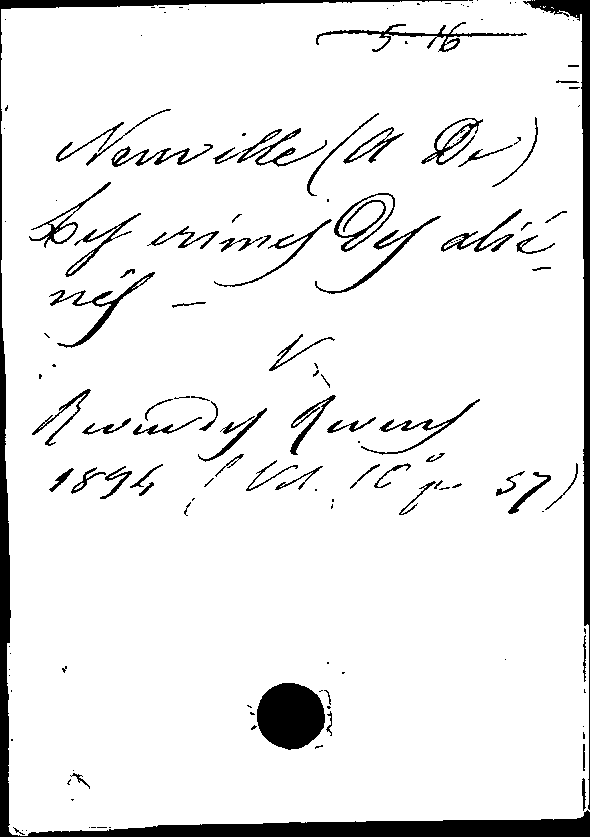 5.16
Neuville (A De)
Les crimes Des alié-
nés —
V.
Revue des Revues
1894 (Vol. 10° p 57)